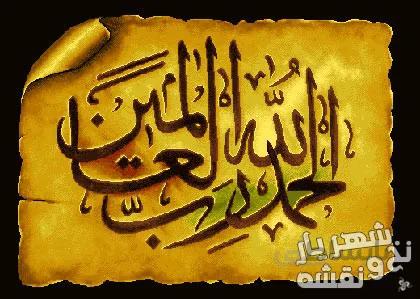 الحمد لله رب العالمين
شهریار
نخ و نقشه